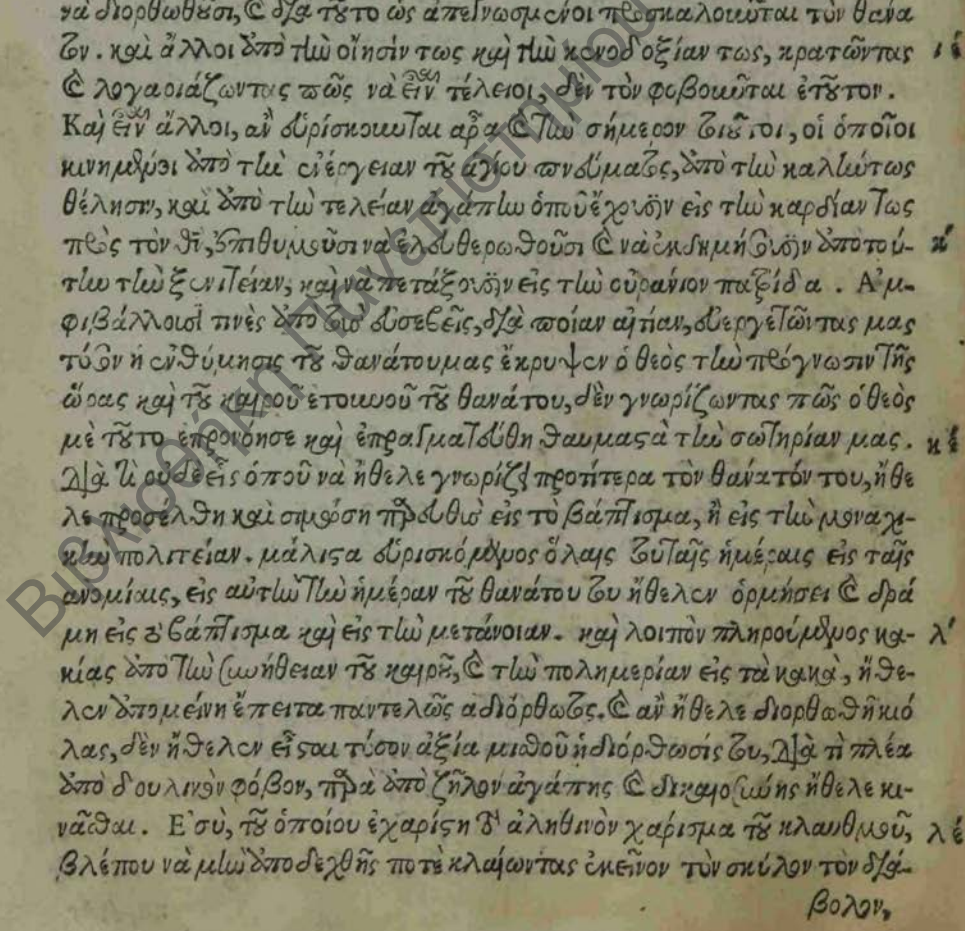 νὰ διορθωθοῦσι, καὶ διὰ τοῦτο ὡς ἀπεγνωσμένοι προσκαλοιοῦται τὸν θάνα
τον. καὶ ἄλλοι ἀπὸ τὴν οἴησίν τως καὶ τὴν κενοδοξίαν τως, κρατῶντας ιέ
καὶ λογαριάζωντας πῶς νὰ εἶναι τέλειοι, δὲν τὸν φοβοιοῦται ἐτοῦτον.
Καὶ εἶναι ἄλλοι, ἂν εὑρίσκουνται ἆρα καὶ τὴν σήμερον τοιοῦτοι, οἱ ὁποῖοι
κινημένοι ἀπὸ τὴν ἐνέργειαν τοῦ ἁγίου πνεύματος, ἀπὸ τὴν καλήντως
θέλησιν, καὶ ἀπὸ τὴν τελείαν ἀγάπην ὁποῦ ἔχουσιν εἰς τὴν καρδίαν τως
πρὸς τὸν θν, ἐπιθυμοῦσι να ἐλευθερωθοῦσι καὶ νὰ ἐκδημήσουσιν ἀπὸ τού- κ'
την τὴν ξενιτείαν, καὶ να πετάξουσιν εἰς τὴν οὐράνιον πατρίδα. Ἀμ-
φιβάλλουσί τινὲς ἀπὸ τοὺς εὐσεβεῖς, διὰ ποίαν αἰτίαν, εὐεργετῶντας μας
τόσον ἡ ἐνθύμησις τοῦ θανάτου μας ἔκρυψεν ὁ θεὸς τὴν πρόγνωσιν τῆς
ὥρας καὶ τοῦ καιροῦ ἐτουνοῦ τοῦ θανάτου, δὲν γνωρίζωντας πῶς ὁ θεὸς
μὲ τοῦτο ἐπρονόησε καὶ ἐπραγματεύθη θαυμαστὰ τὴν σωτηρίαν μας. κέ
Διατὶ οὐδεεὶς ὁποῦ νὰ ἤθελε γνωρίζῃ προτίτερα τὸν θάνατόν του, ἤθε
λε προσέλθη καὶ σιμώση παρευθὺς εἰς τὸ βάπτισμα, ἢ εἰς τὴν μοναχι-
κὴν πολιτείαν. μάλιστα εὑρισκόμενος ὅλαις ταῖς ἡμέραις εἰς ταῖς
ἀνομίαις, εἰς αὐτὴν τὴν ἡμέραν τοῦ θανάτου του ἤθελεν ὁρμήσει καὶ δρά
μη εἰς τὸ βάπτισμα καὶ εἰς τὴν μετάνοιαν. καὶ λοιπὸν πληρούμενος κα- λ'
κίας ἀπὸ τὴν συνήθειαν τοῦ καιροῦ, καὶ τὴν πολημερίαν εἰς τὰ κακὰ, ἤθε-
λεν ἀπομείνη ἔπειτα παντελῶς ἀδιόρθωτος. καὶ ἂν ἤθελε διορθωθῆ κιό
λας, δὲν ἤθελεν εἶσται τόσον ἀξία μισθοῦ ἡ διόρθωσίς του, διατὶ πλέα
ἀπὸ δουλικὸν φόβον, παρὰ ἀπὸ ζῆλον ἀγάπης καὶ δικαιοσύνης ἤθελε κι-
νᾶσθαι. Ἐσὺ, τοῦ ὁποίου ἐχαρίστη τὸ ἀληθινὸν χάρισμα τοῦ κλαυθμοῦ, λέ
βλέπου νὰ μὴν ἀποδεχθῆς ποτὲ κλαίωντας ἐκεῖνον τὸν σκύλον τὸν διά-
βολον,